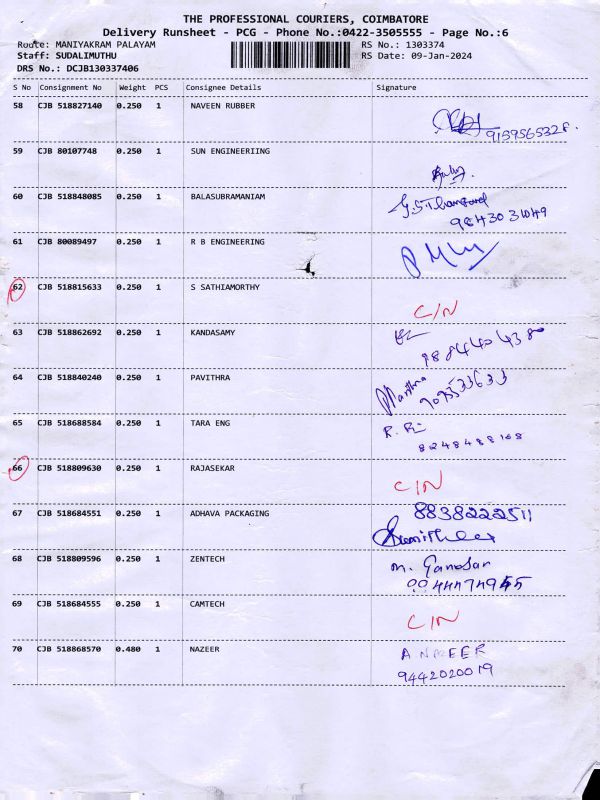 THE PROFESSIONAL COURIERS, COIMBATORE
Delivery Runsheet - PCG - Phone No.:0422-3505555 - Page No.:6
Route: MANIYAKRAM PALAYAM RS No.: 1303374
Staff: SUDALIMUTHU RS Date: 09-Jan-2024
DRS No.: DCJB130337406
S No Consignment No Weight PCS Consignee Details Signature
58 CJB 518827140 0.250 1 NAVEEN RUBBER
59 CJB 80107748 0.250 1 SUN ENGINEERIING
60 CJB 518848085 0.250 1 BALASUBRAMANIAM
9843031049
61 CJB 80089497 0.250 1 R B ENGINEERING
62 CJB 518815633 0.250 1 S SATHIAMORTHY
C/N
63 CJB 518862692 0.250 1 KANDASAMY
9884404380
64 CJB 518840240 0.250 1 PAVITHRA
65 CJB 518688584 0.250 1 TARA ENG
8248488168
66 CJB 518809630 0.250 1 RAJASEKAR
C/N
67 CJB 518684551 0.250 1 ADHAVA PACKAGING 8838222511
68 CJB 518809596 0.250 1 ZENTECH
69 CJB 518684555 0.250 1 CAMTECH
C/N
70 CJB 518868570 0.480 1 NAZEER A NAZEER
9442020019